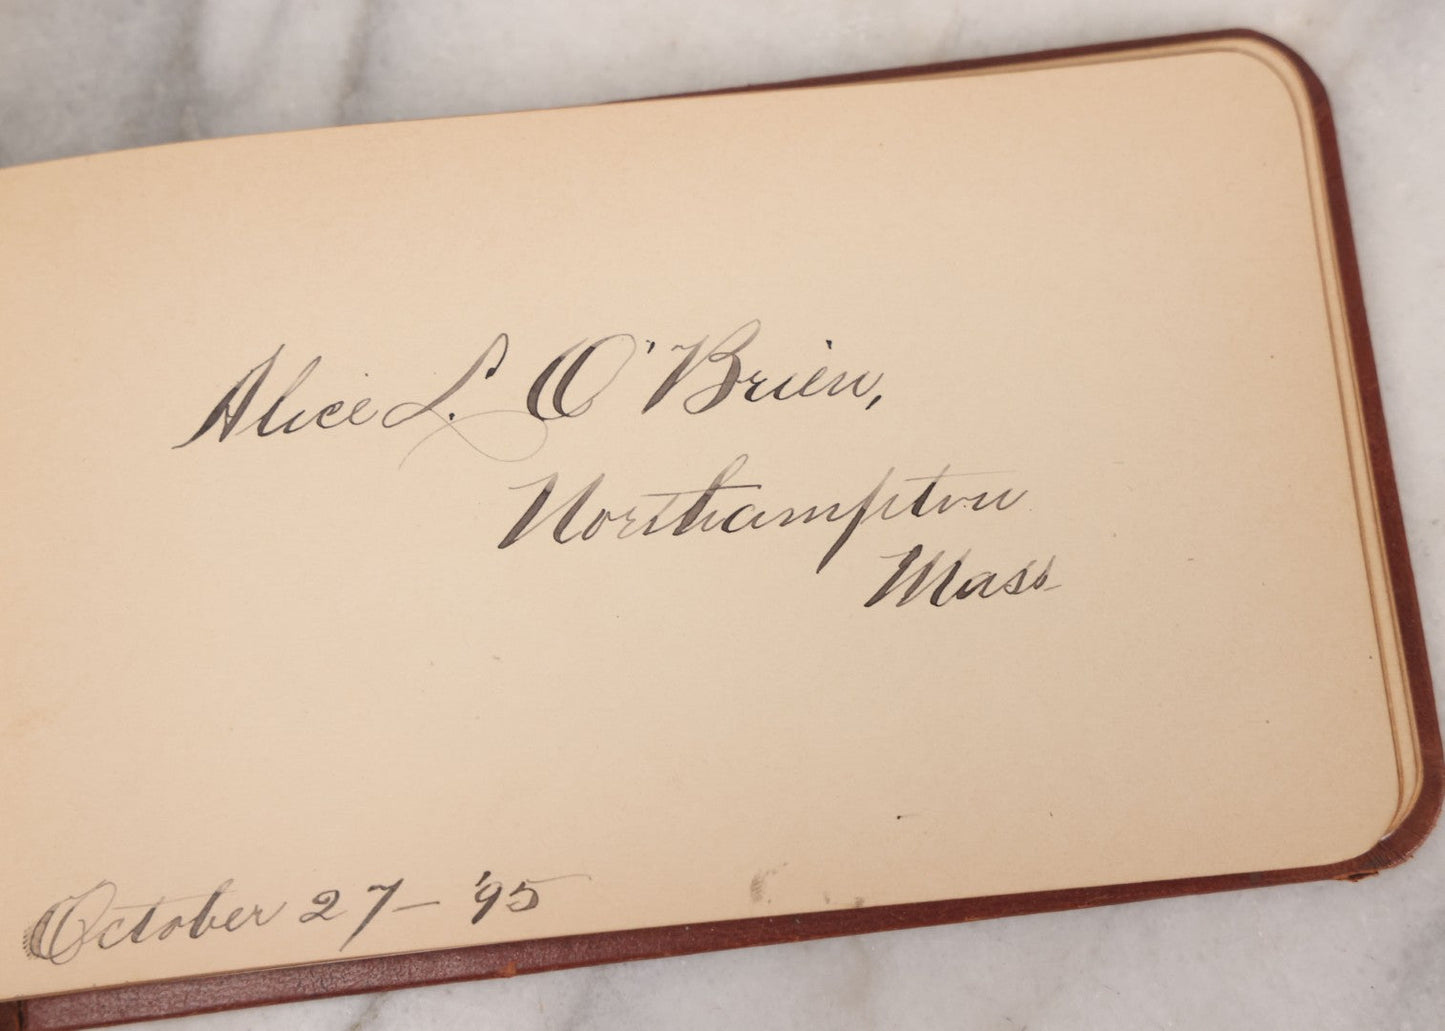 Alice L. O'Brien,
Northampton
Mass
October 27- '95